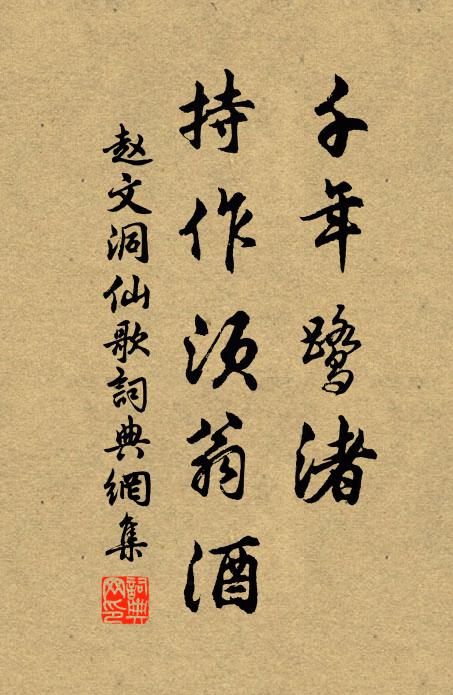 千年鹭渚
持作须翁酒
赵文洞仙歌詞典網集
詞典网印